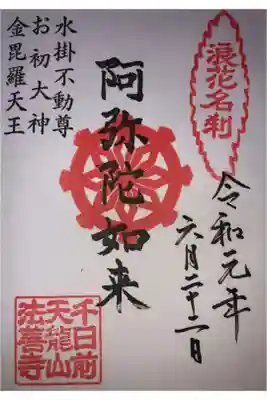 浪花名刹
令和元年
六月二十二日
阿弥陀如来
水掛不動尊
お初大神
金毘羅天王
千日前
天龍山
法善寺